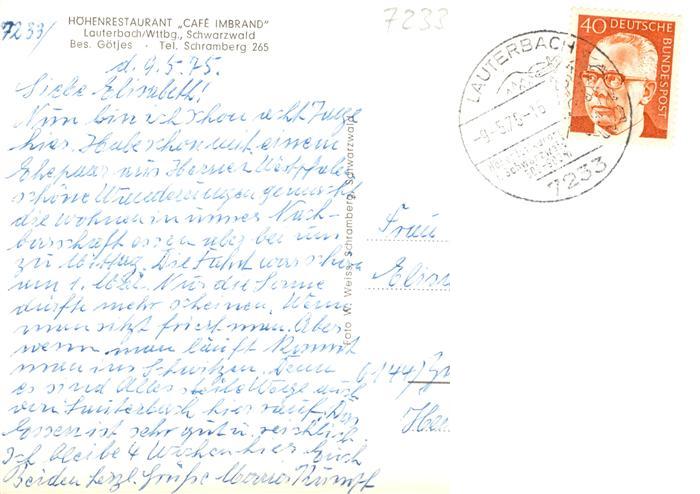 7233/
HÖHENRESTAURANT „CAFÉ IMBRAND"
Lauterbach/Wttbg., Schwarzwald
Bes. Götjes · Tel. Schramberg 265
7233
40 DEUTSCHE
BUNDESPOST
LAUTERBACH
-9.-5.75-16
7233
d. 9.5.75.
Liebe Elisabeth!
Nun bin ich schon acht Tage
hier. Habe schon mit einem
Ehepaar aus Herner Westfalen
schöne Wanderungen gemacht
die wohnen in unser Nach-
barschaft essen aber bei uns
zu Mittag. Die Fahrt war schön
am 1. Mai. Nur die Sonne
dürfte mehr scheinen. Wenn
man sitzt friert man. Aber
wenn man läuft kommt
man ins Schwitzen. Denn
es sind Alles steile Wege auch
von Lauterbach hier rauf. Das
Essen ist sehr gut u. reichlich.
Ich bleibe 4 Wochen hier Euch
Beiden herzl. Grüße
Foto W. Weiss, Schramberg, Schwarzwald
Frau
Elis